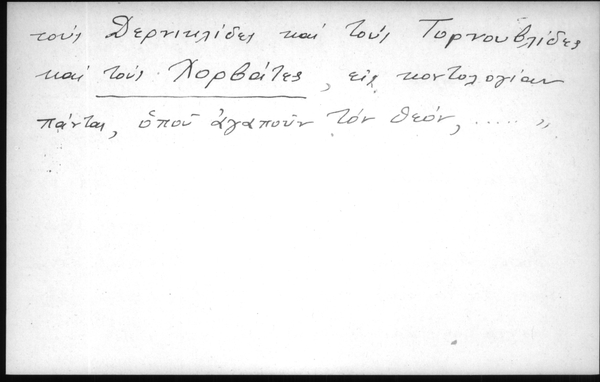 τούς Δερνικλίδες καί τούς Τορνουβλίδες
καί τούς Χορβάτες, εἰς κοντολογίαν
πάντας, ὁποῦ ἀγαποῦν τόν Θεόν, ..... »